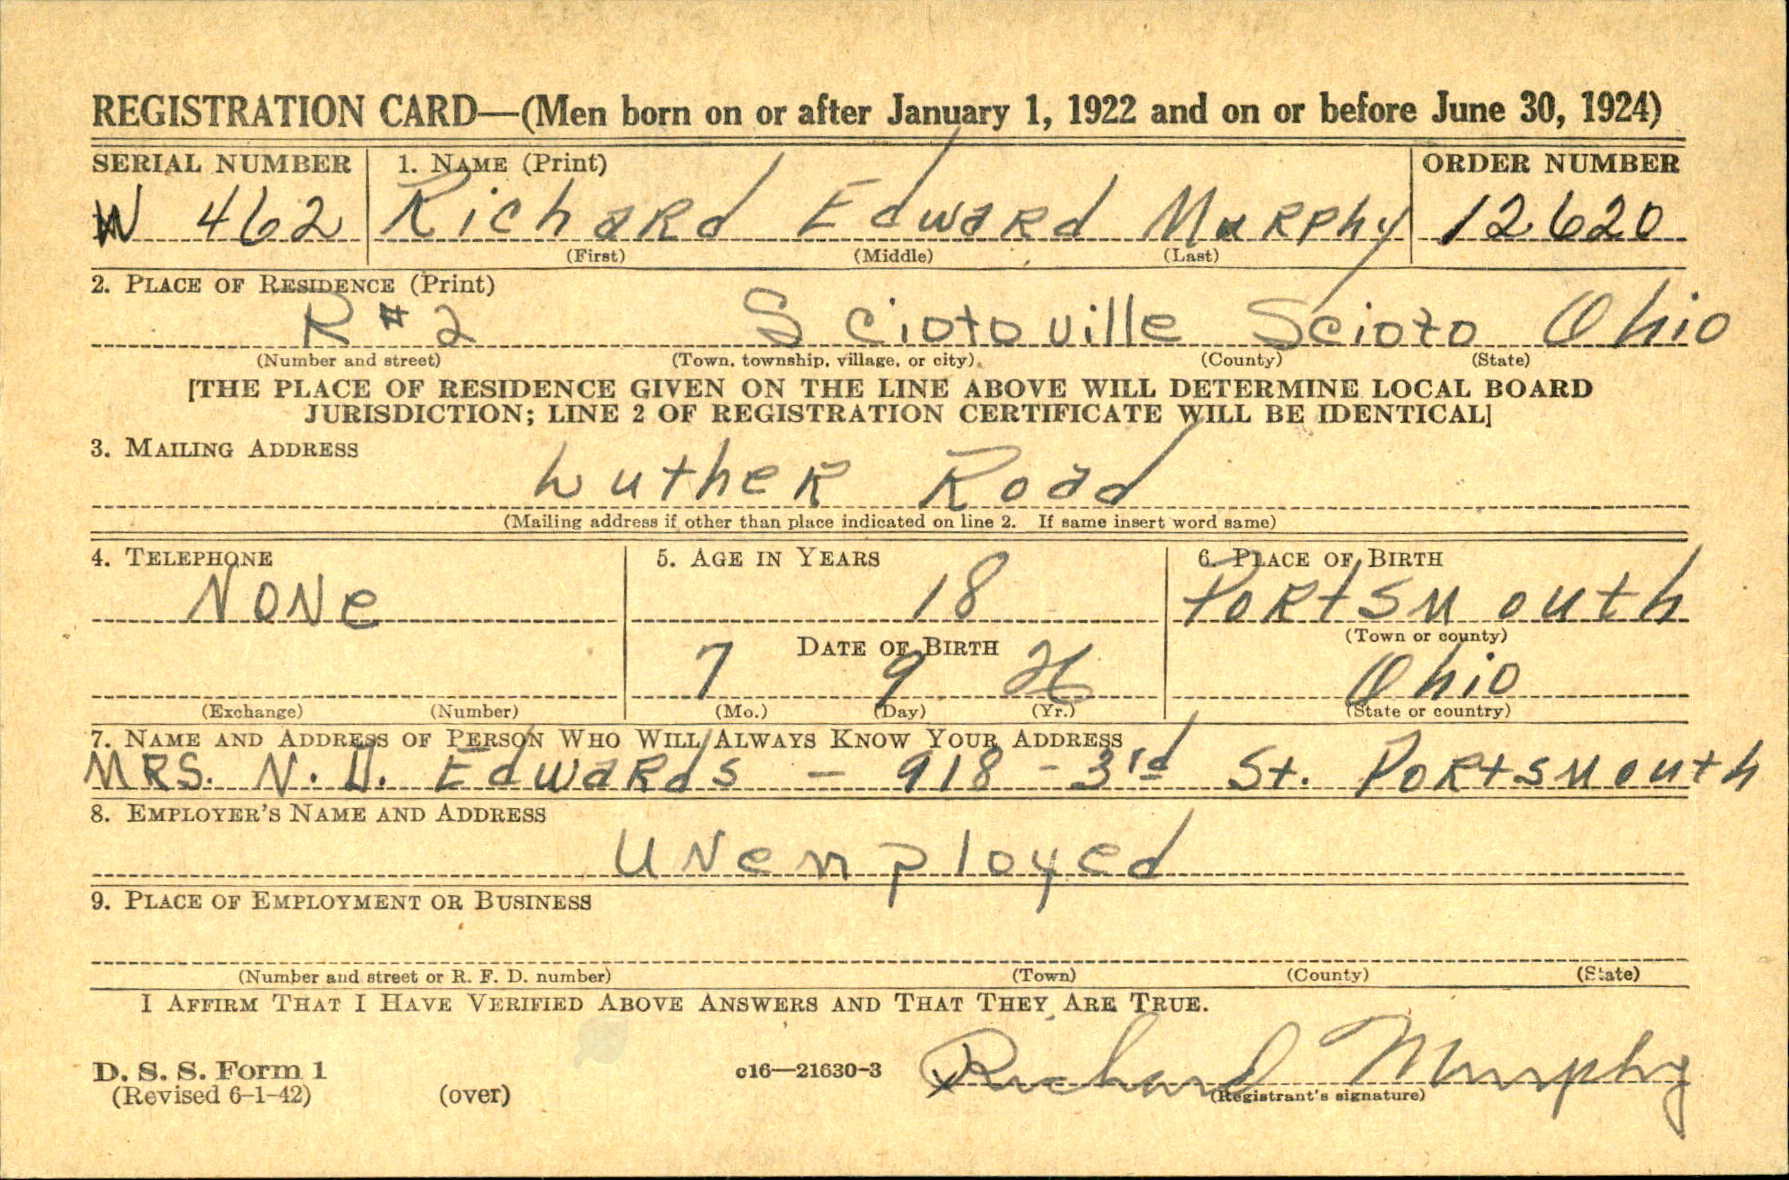 REGISTRATION CARD—(Men born on or after January 1, 1922 and on or before June 30, 1924)
SERIAL NUMBER 1. NAME (Print) ORDER NUMBER
W 462 Richard Edward Murphy 12620
(First) (Middle) (Last)
2. PLACE OF RESIDENCE (Print)
R #2 Sciotoville Scioto Ohio
(Number and street) (Town, township, village, or city) (County) (State)
[THE PLACE OF RESIDENCE GIVEN ON THE LINE ABOVE WILL DETERMINE LOCAL BOARD
JURISDICTION; LINE 2 OF REGISTRATION CERTIFICATE WILL BE IDENTICAL]
3. MAILING ADDRESS
Luther Road
(Mailing address if other than place indicated on line 2. If same insert word same)
4. TELEPHONE 5. AGE IN YEARS 6. PLACE OF BIRTH
None 18 Portsmouth
(Town or county)
DATE OF BIRTH
7 9 Ohio
(Exchange) (Number) (Mo.) (Day) (Yr.) (State or country)
7. NAME AND ADDRESS OF PERSON WHO WILL ALWAYS KNOW YOUR ADDRESS
MRS. N. D. Edwards – 918 – 3rd St. Portsmouth
8. EMPLOYER'S NAME AND ADDRESS
Unemployed
9. PLACE OF EMPLOYMENT OR BUSINESS
(Number and street or R. F. D. number) (Town) (County) (State)
I AFFIRM THAT I HAVE VERIFIED ABOVE ANSWERS AND THAT THEY ARE TRUE.
D. S. S. Form 1 c16—21630-3 Richard Murphy
(Revised 6-1-42) (over) (Registrant's signature)